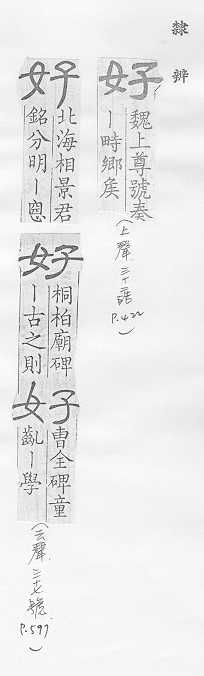 隸辨
好
魏上尊號奏
丨畤鄉矦
(上聲三十二晧 P.422)
好
北海相景君
銘分明丨惡
好
桐柏廟碑
丨古之則
好
曹全碑童
齔丨學
(去聲三十七號 P.597)